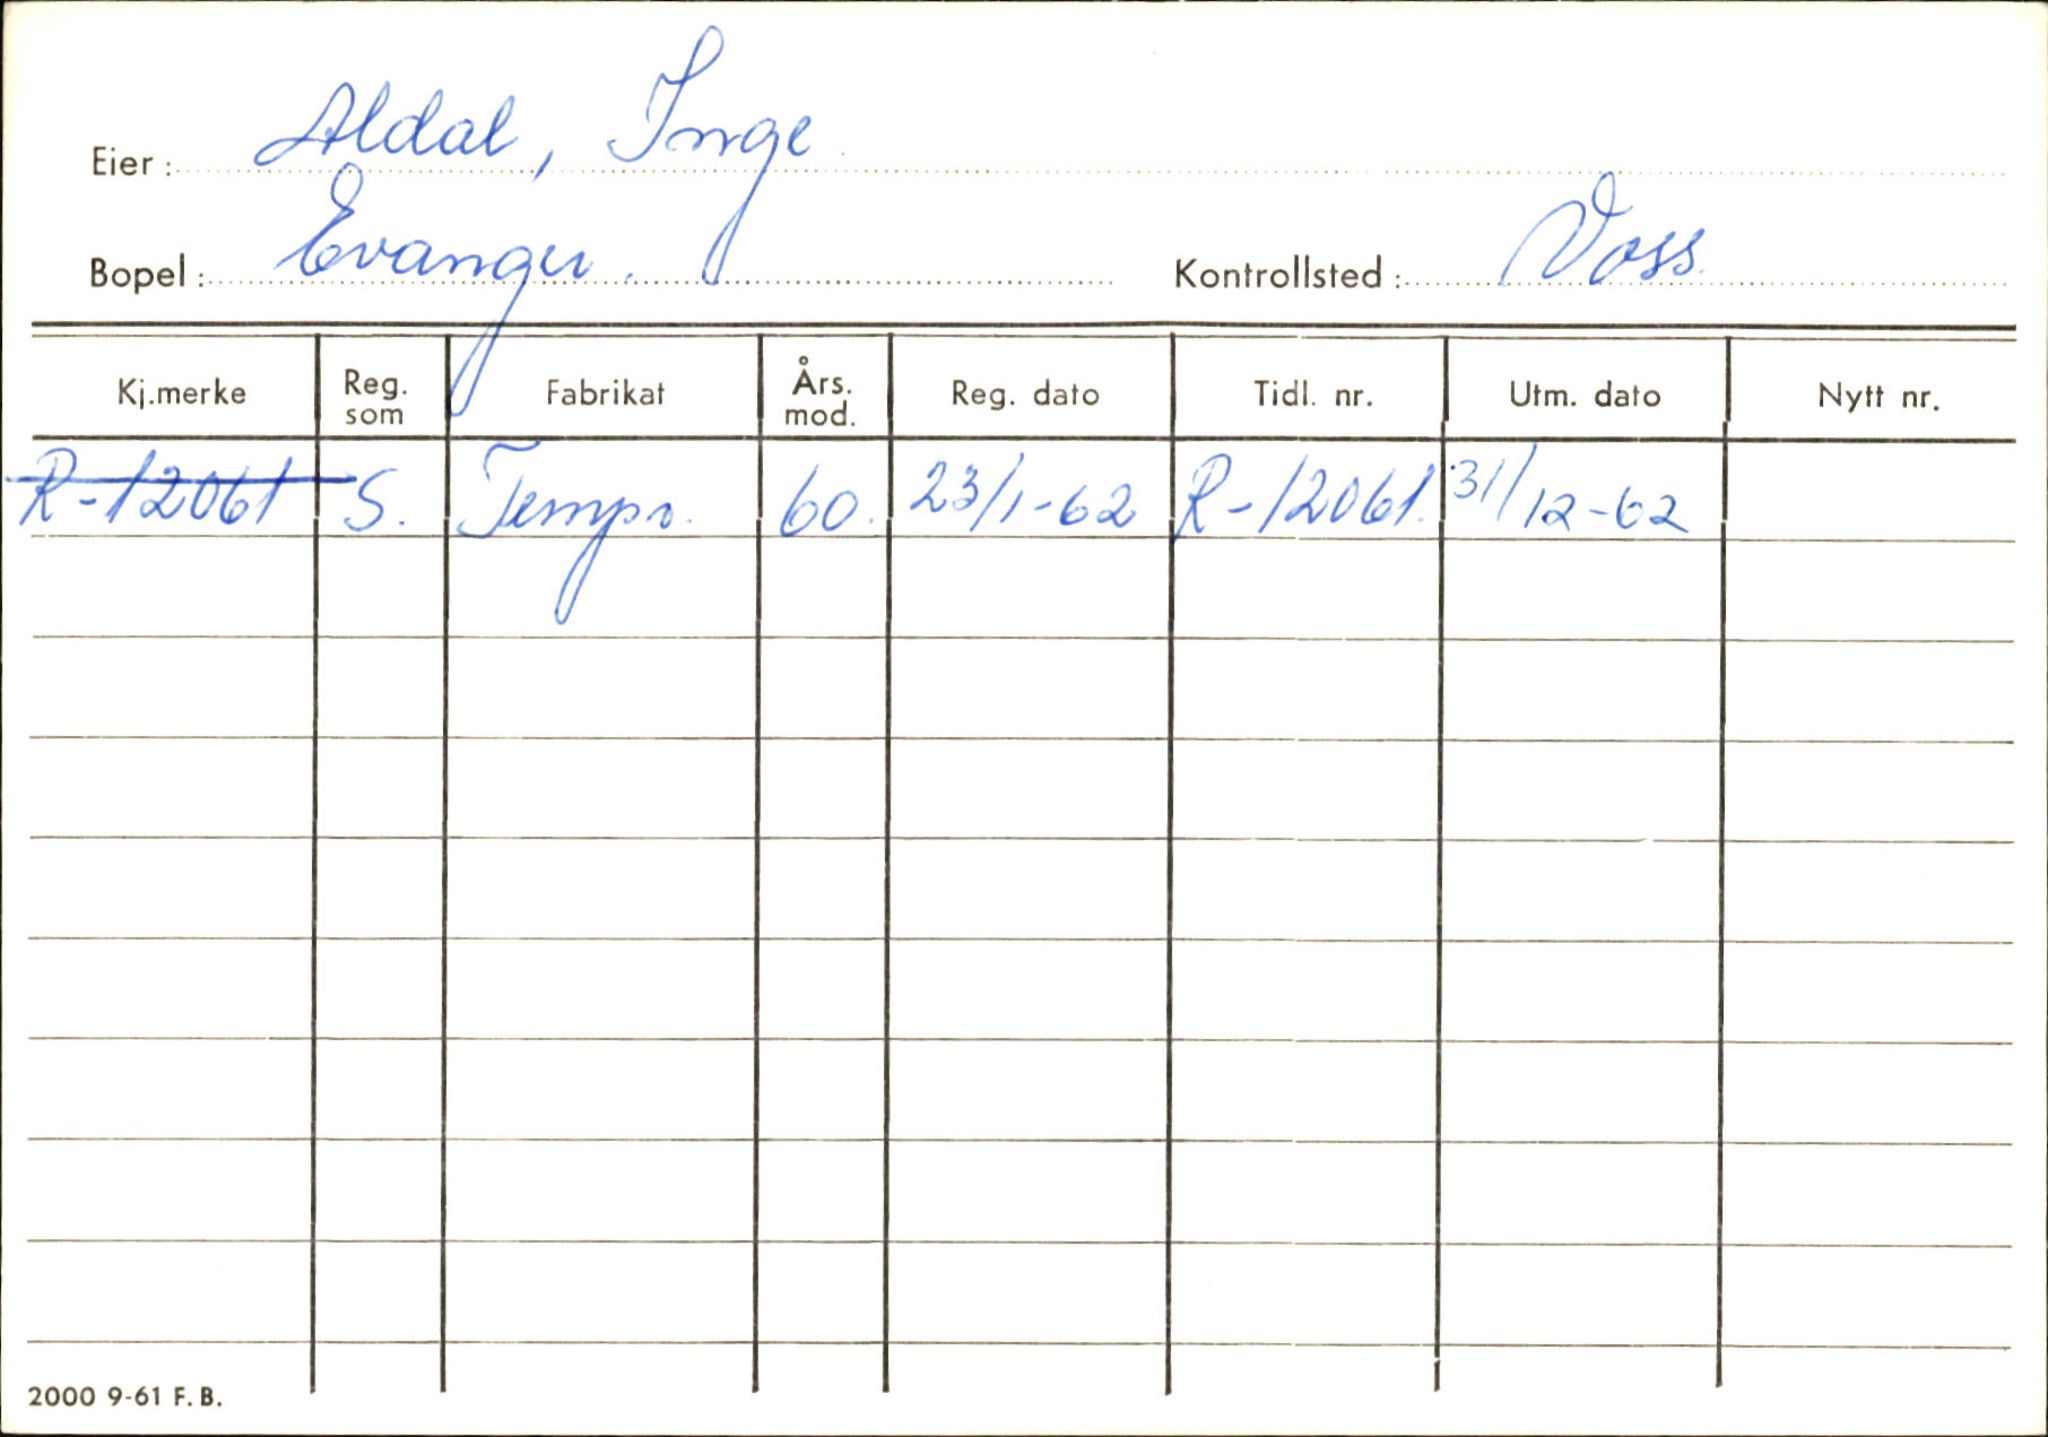 Eier: Aldal, Inge
Bopel: Evanger. Kontrollsted: Voss.
Kj.merke Reg. som Fabrikat Års. mod. Reg. dato Tidl. nr. Utm. dato Nytt nr.
R-12061 S. Tempo. 60. 23/1-62 R-12061. 31/12-62
2000 9-61 F.B.